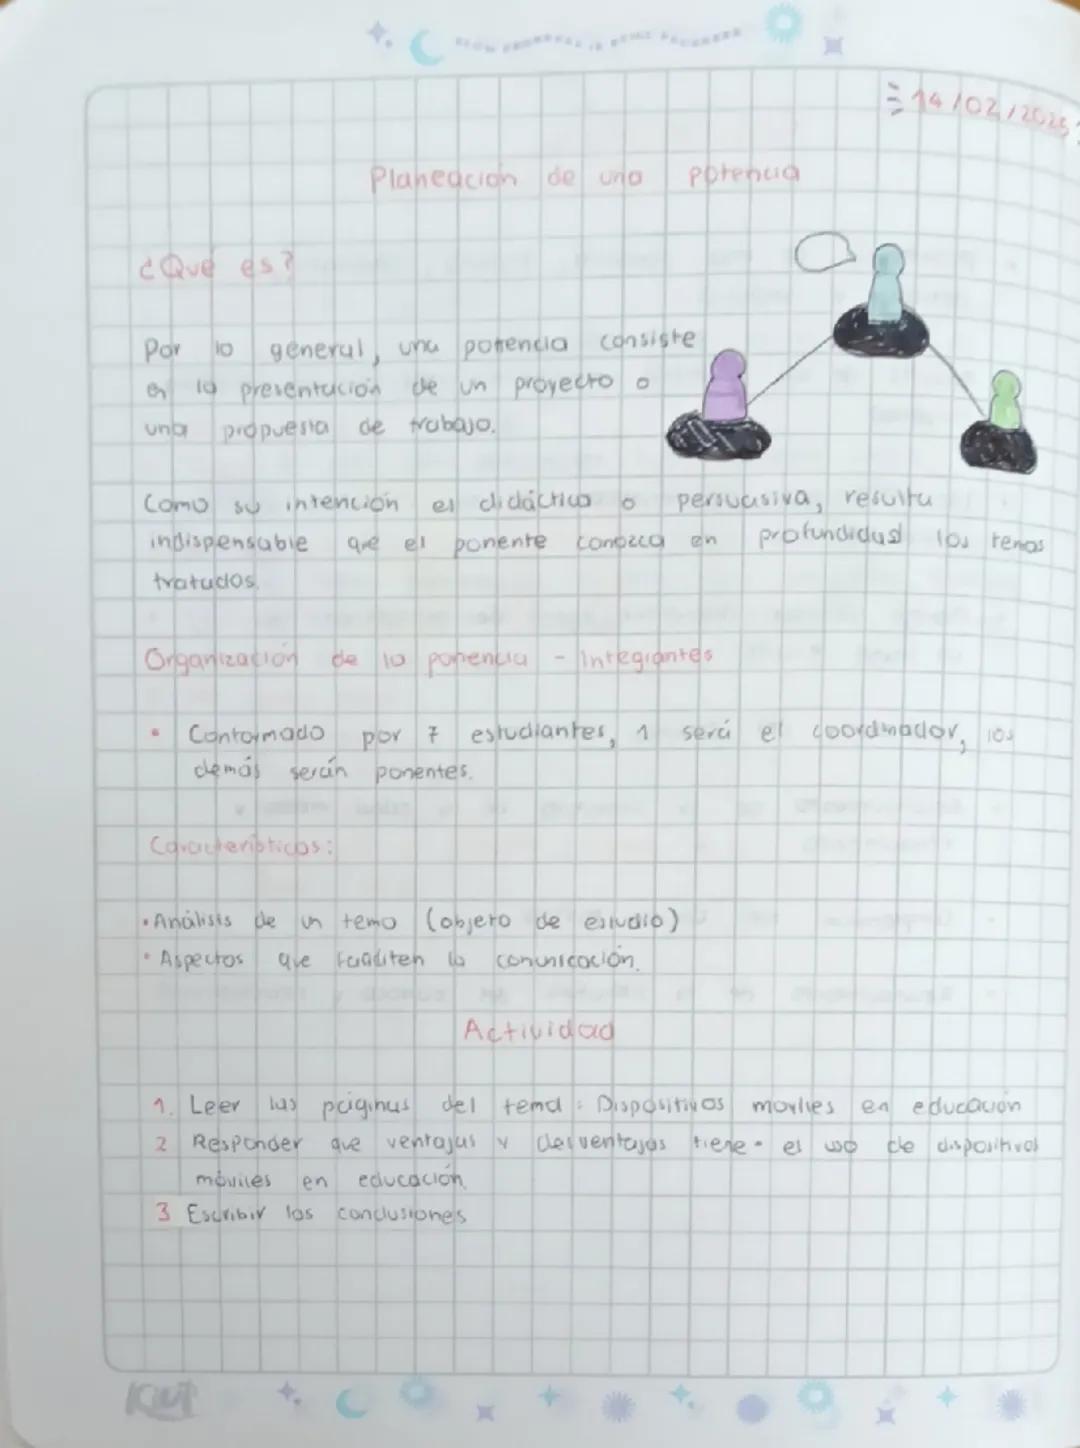 14/02/2025
Planeación de una potencia
¿Que es?
Por lo general, una potencia consiste
en la presentación de un proyecto o
una propuesta de trabajo.
Como su intención es didáctica o persuasiva, resulta
indispensable que el ponente conozca en profundidad los temas
tratados.
Organización de la ponencia - Integrantes
• Conformado por 7 estudiantes, 1 será el coordinador, los
demás serán ponentes.
Características:
• Análisis de un tema (objeto de estudio)
• Aspectos que faciliten la comunicación.
Actividad
1. Leer las páginas del tema: Dispositivos moviles en educación
2 Responder que ventajas y desventajas tiene el uso de dispositivos
móviles en educación.
3 Escribir las conclusiones
Kiut